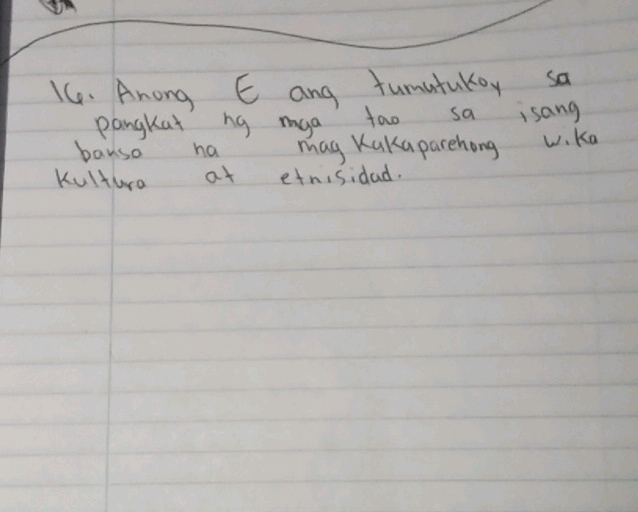 16. Anong E ang tumutukoy sa
pangkat ng mga tao sa isang
bansa na magkakaparehong wika
kultura at etnisidad.